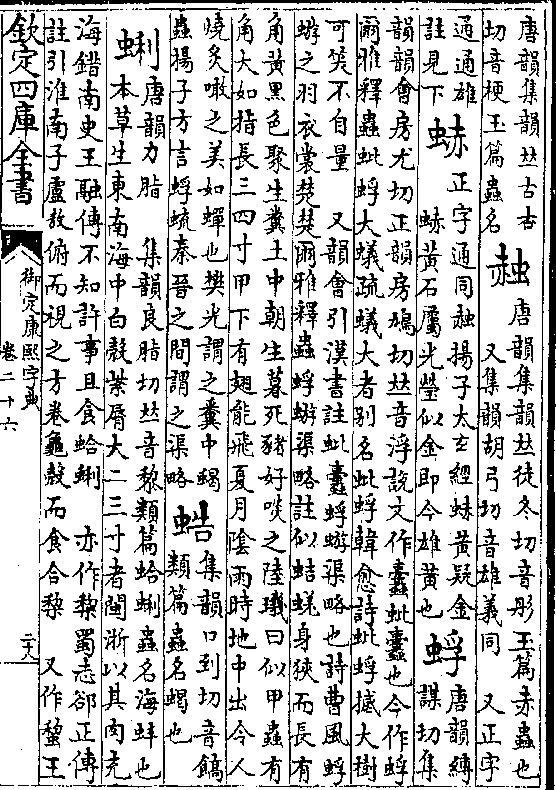 唐韻集韻𠀤古杏切音梗玉篇蟲名 赨 唐韻集韻𠀤徒冬切音彤玉篇赤蟲也
又集韻胡弓切音雄義同 又正字通通雄註見下
蛛 正字通同赨揚子太玄經蛛黃疑金註蛛黃石屬光瑩似金即今雄黃也 蜉 唐韻縛謀切集
韻韻會房尤切正韻房鳩切𠀤音浮說文作䘀蚍䘀也今作蜉
爾雅釋蟲蚍蜉大蟻疏蟻大者別名蚍蜉韓愈詩蚍蜉撼大樹
可笑不自量 又韻會引漢書註蚍䘀蜉蝣渠略也詩曹風蜉
蝣之羽衣裳楚楚爾雅釋蟲蜉蝣渠略註似蛣蜣身狹而長有
角黃黑色聚生糞土中朝生暮死豬好啖之陸璣曰似甲蟲有
角大如指長三四寸甲下有翅能飛夏月陰雨時地中出今人
燒炙噉之美如蟬也樊光謂之糞中蝎
蟲揚子方言蜉蝣秦晉之間謂之渠略 䗣 集韻口到切音鎬類篇蟲名蝎也
蜊 唐韻力脂 集韻良脂切𠀤音黎類篇蛤蜊蟲名海蚌也
本草生東南海中白殼紫脣大二三寸者閩浙以其肉充
海錯南史王融傳不知許事且食蛤蜊 亦作黎蜀志郤正傳
註引淮南子盧敖俯而視之方卷龜殼而食合黎 又作蟹王
欽定四庫全書
御定康熙字典
卷二十六
二六